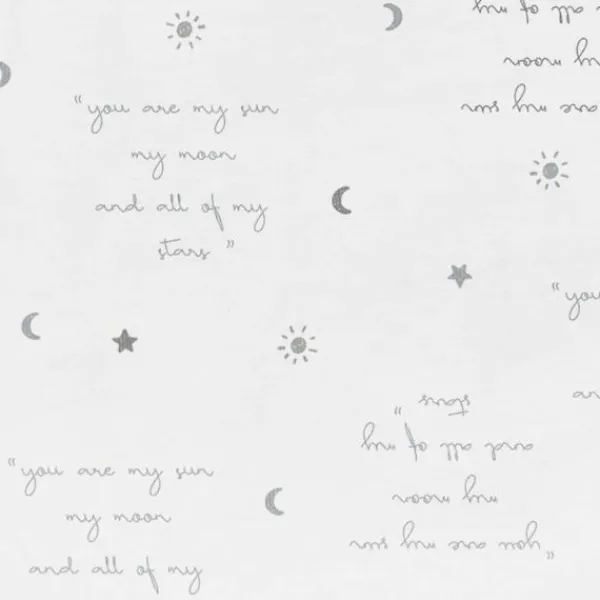 and all of my
my moon
you are my sun
"you are my sun
my moon
and all of my
stars"
"you
an
"you are my sun
my moon
and all of my
"you are my sun
my moon
and all of my
stars"